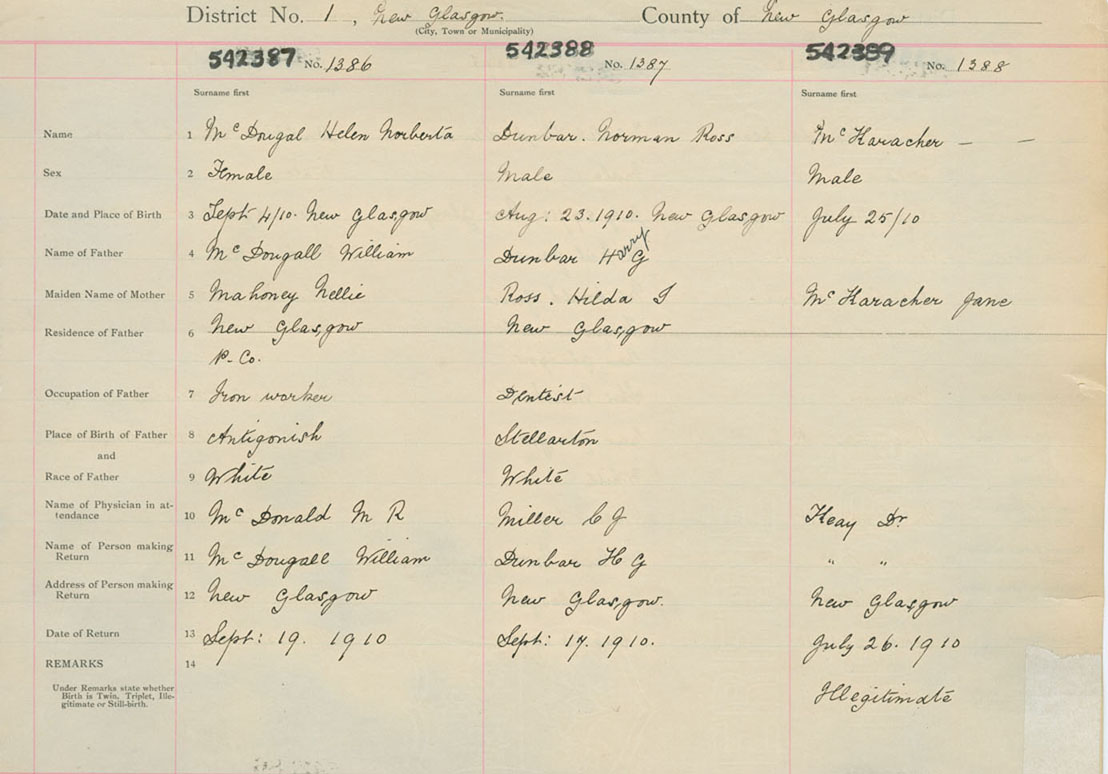 District No. 1, New Glasgow. County of New Glasgow
(City, Town or Municipality)
542387 No. 1386 542388 No. 1387 542389 No. 1388
Surname first Surname first Surname first
Name 1 McDougal Helen Norberta Dunbar. Norman Ross McKaracher — —
Sex 2 Female Male Male
Date and Place of Birth 3 Sept 4/10. New Glasgow Aug: 23. 1910. New Glasgow July 25/10
Name of Father 4 McDougall William Dunbar Harry G
Maiden Name of Mother 5 Mahoney Nellie Ross. Hilda I McKaracher Jane
Residence of Father 6 New Glasgow New Glasgow
P. Co.
Occupation of Father 7 Iron worker Dentist
Place of Birth of Father 8 Antigonish Stellarton
and
Race of Father 9 White White
Name of Physician in at-
tendance 10 McDonald M R Miller C J Keay Dr
Name of Person making
Return 11 McDougall William Dunbar H G " "
Address of Person making
Return 12 New Glasgow New Glasgow. New Glasgow
Date of Return 13 Sept: 19. 1910 Sept: 17. 1910. July 26. 1910
REMARKS 14
Under Remarks state whether
Birth is Twin, Triplet, Ille-
gitimate or Still-birth. Illegitimate